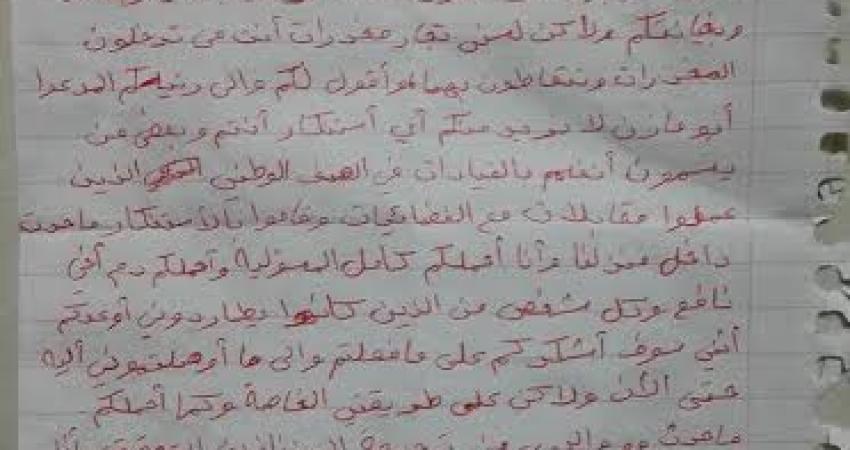 وبخيانتكم ولاكن لستي تجار مخدرات أنت من تدخلون
المخدرات وتتعاطون بها وأقول لكم والى رئيسكم المدعوا
أبو مازن لا نريد منكم أي أستنكار أنتم وبعض من
يسمون أنفسهم بالقيادات في الصف الوطني الذين
عملوا مقابلات مع الفضائيات وقاموا بالأستنكار ما حدث
داخل منزلنا وأنا أحملكم كامل المسؤلية وأحملكم دم أخي
نافع وكل شخص من الذين كانوا يطاردوني أوعدكم
أنني سوف أشكركم على ما فعلتم والى ما أوصلتموني أليه
حتى الأن ولاكن على طريقتي الخاصة وكما أحملكم
ماحدث